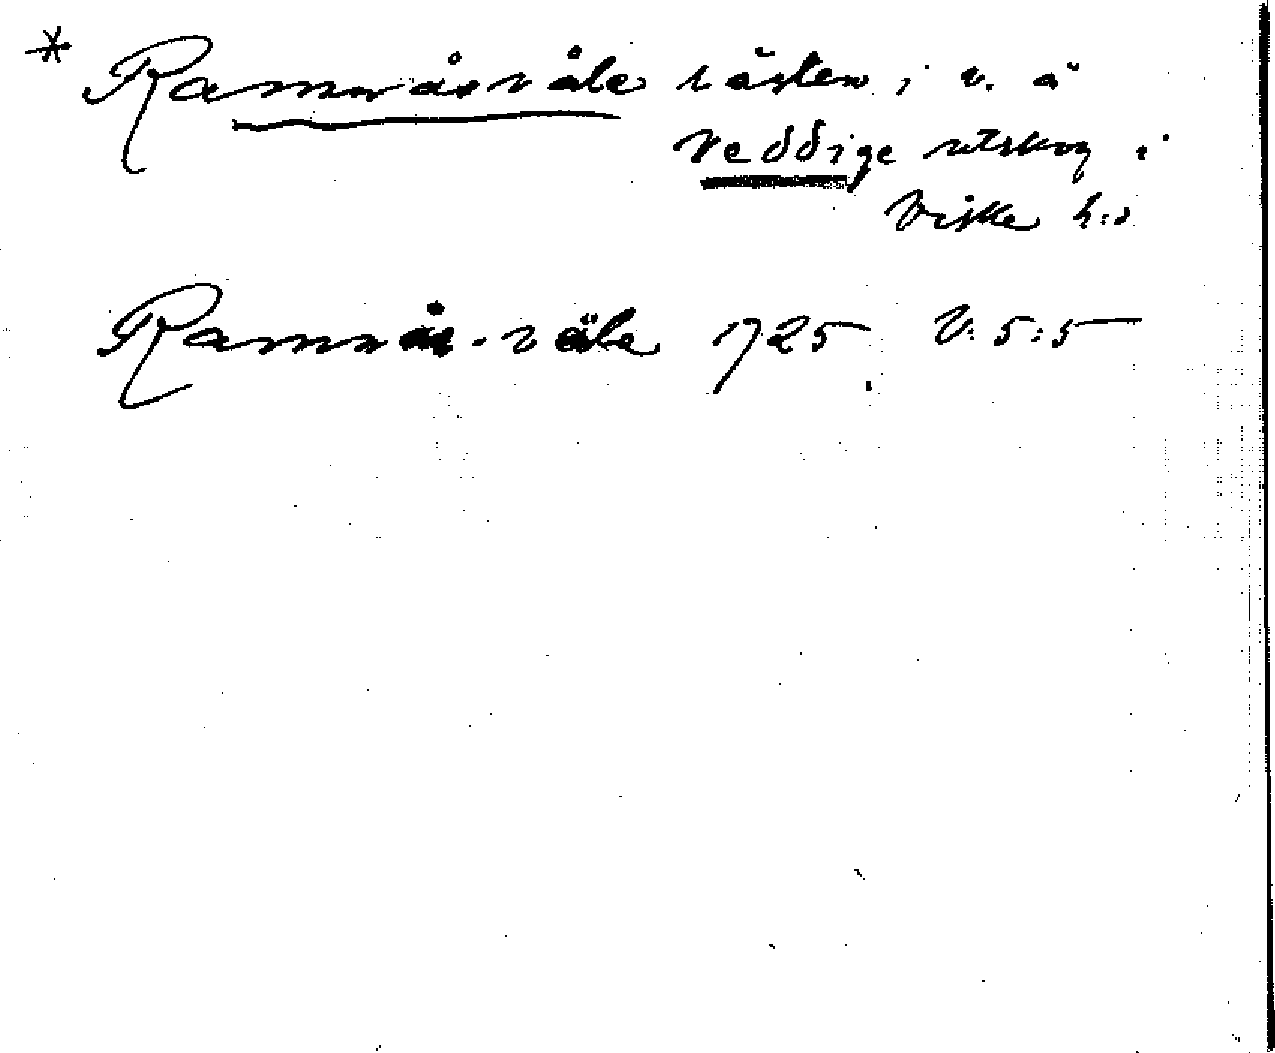 * Ramnåsvåle västen, i v. å
Veddige utskog i
Viske h:d
Ramnås-våle 1725 V:5:5